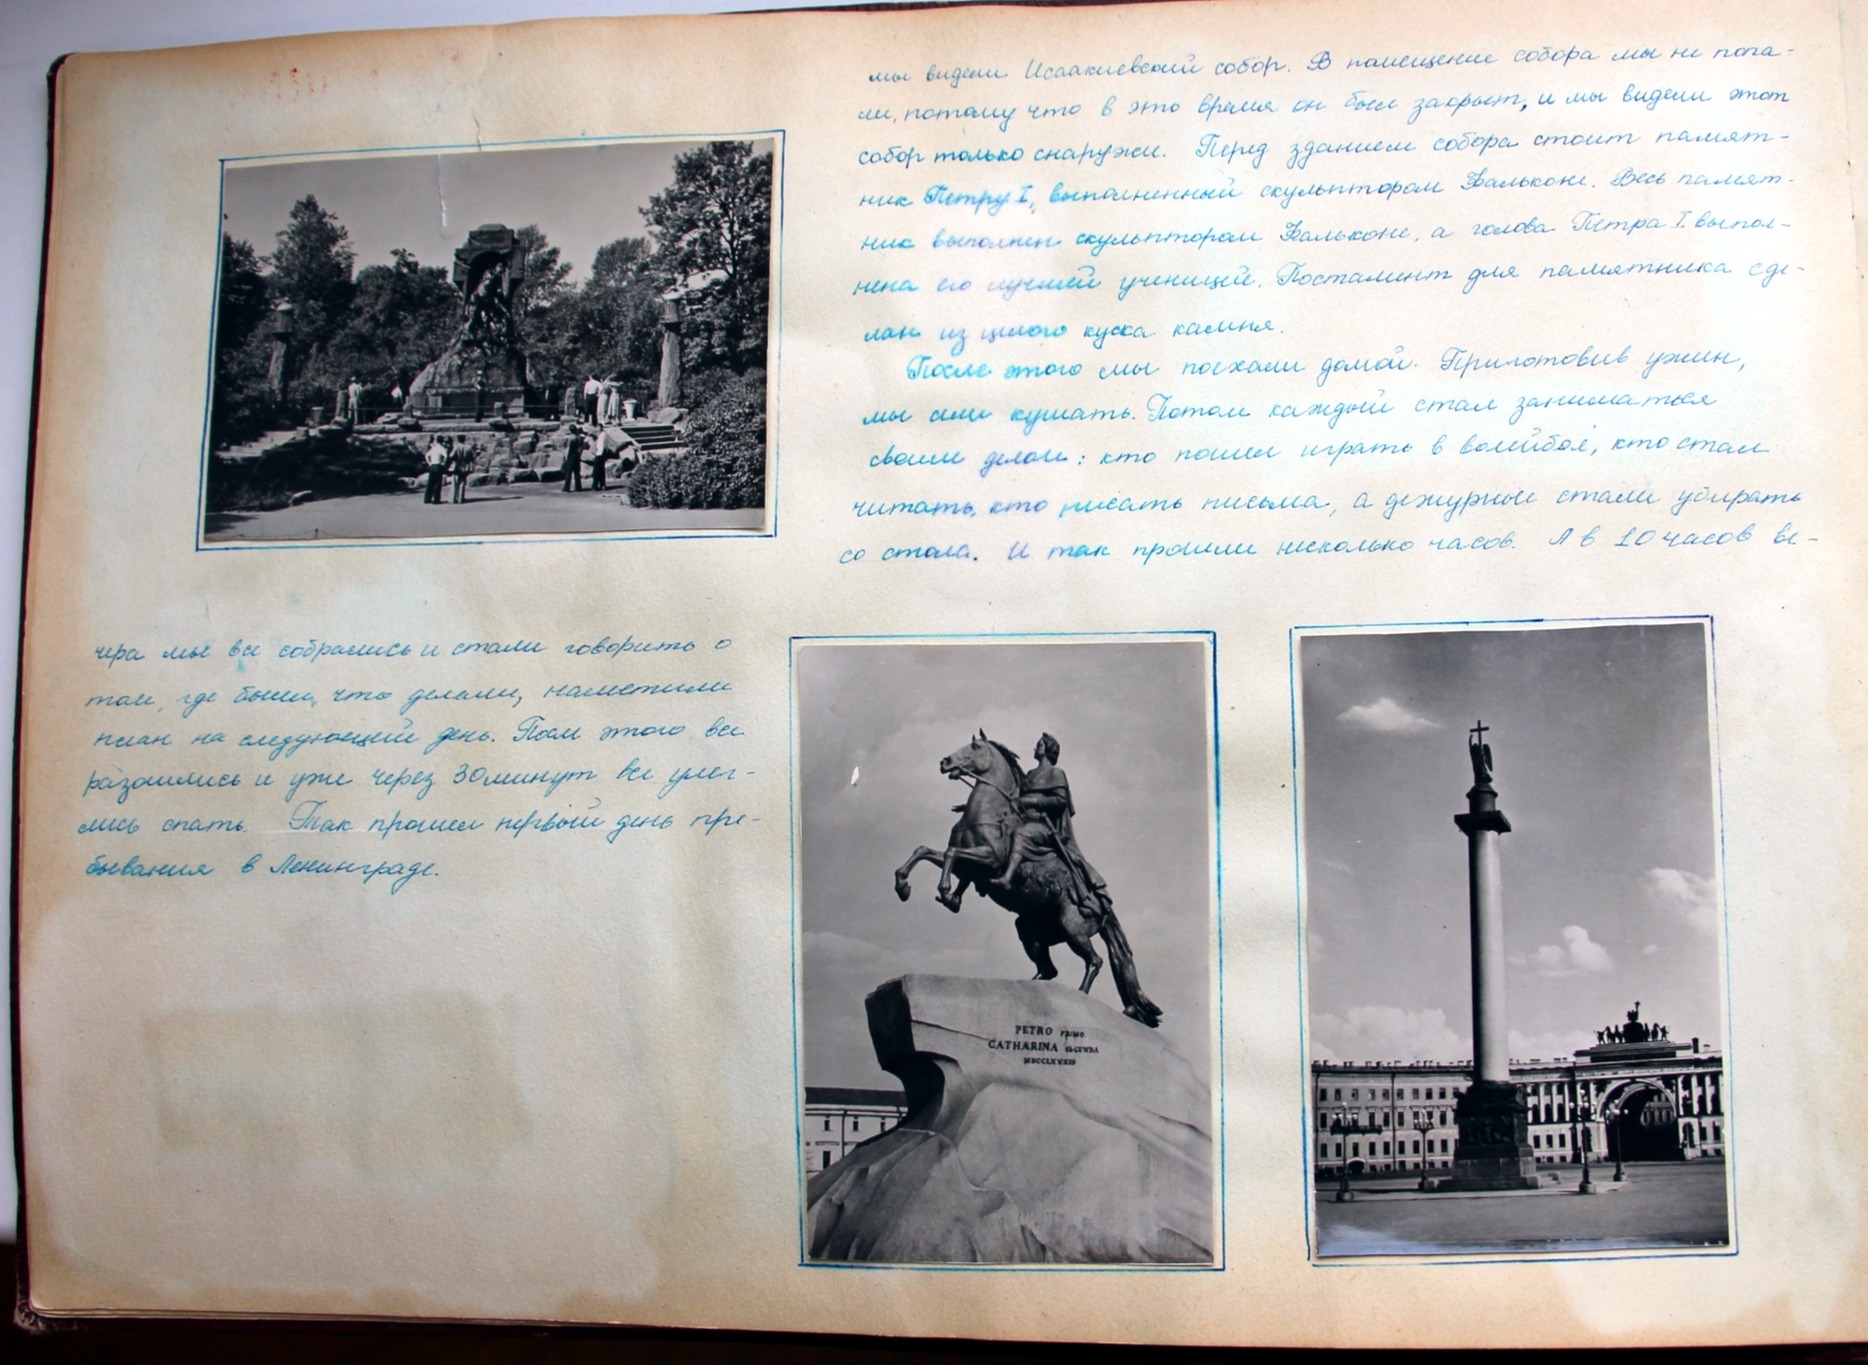 мы видели Исаакиевский собор. В помещение собора мы не попа-
ли, потому что в это время он был закрыт, и мы видели этот
собор только снаружи. Перед зданием собора стоит памят-
ник Петру I, выполненный скульптором Фальконе. Весь памят-
ник выполнен скульптором Фальконе, а голова Петра I выпол-
нена его лучшей ученицей. Постамент для памятника сде-
лан из целого куска камня.
После этого мы поехали домой. Приготовив ужин,
мы сели кушать. Потом каждый стал заниматься
своим делом: кто пошел играть в волейбол, кто стал
читать, кто писать письма, а дежурные стали убирать
со стола. И так прошли несколько часов. А в 10 часов ве-
чера мы все собрались и стали говорить о
том, где были, что делали, наметили
план на следующий день. После этого все
разошлись и уже через 30 минут все улег-
лись спать. Так прошел первый день пре-
бывания в Ленинграде.
PETRO PRIMO
CATHARINA SECUNDA
MDCCLXXXII